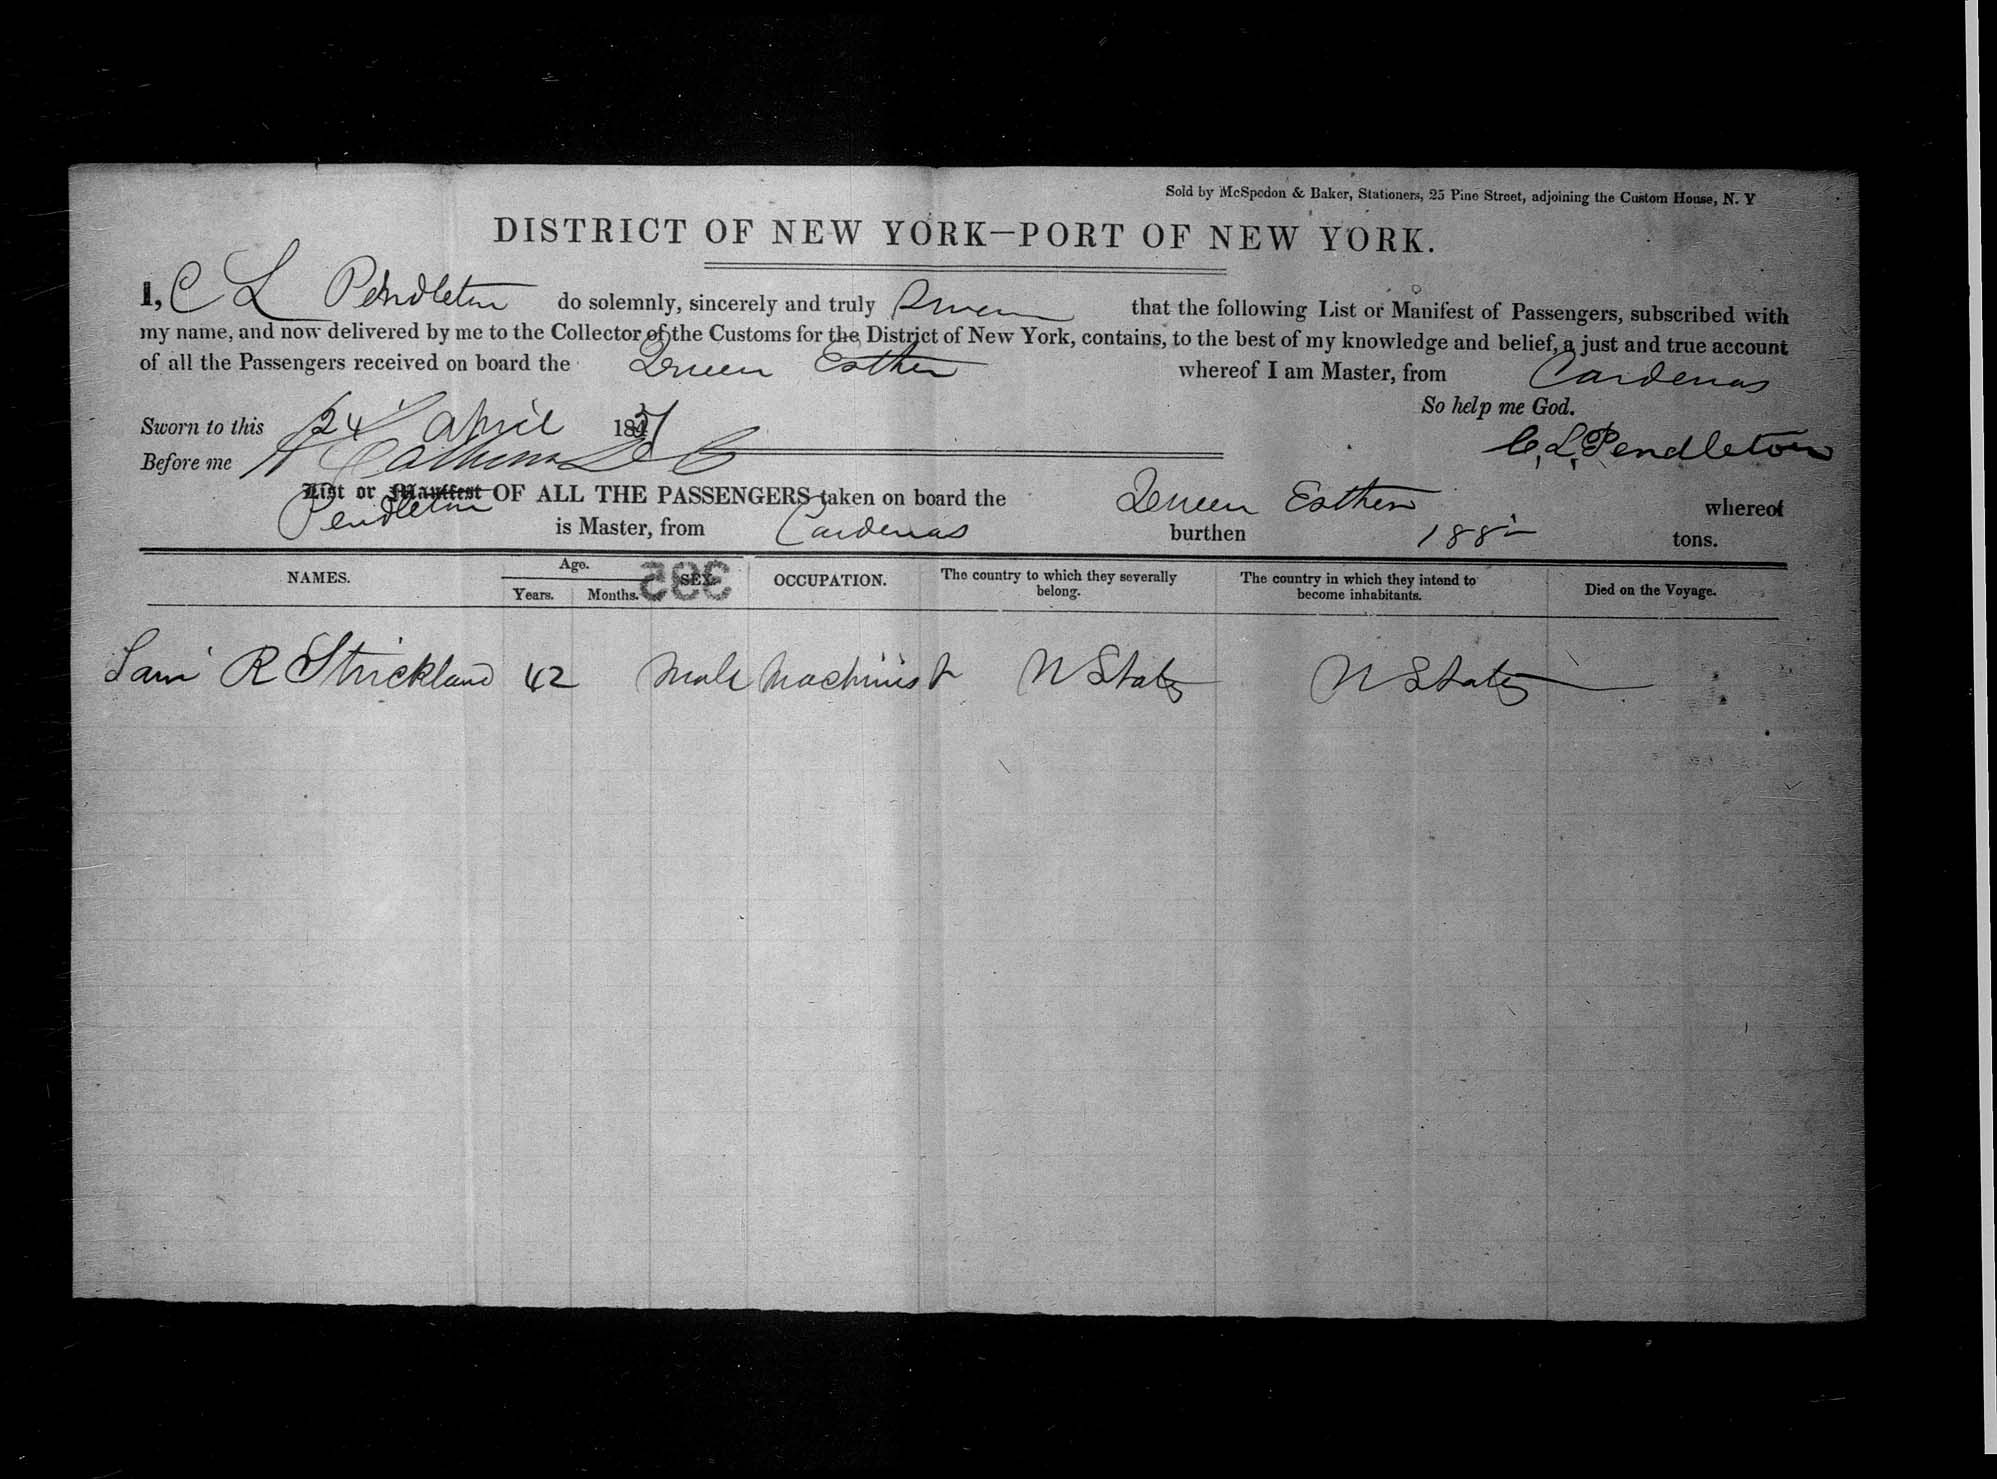 Sold by McSpedon & Baker, Stationers, 25 Pine Street, adjoining the Custom House, N. Y
DISTRICT OF NEW YORK—PORT OF NEW YORK.
I, C L Pendleton do solemnly, sincerely and truly Swear that the following List or Manifest of Passengers, subscribed with
my name, and now delivered by me to the Collector of the Customs for the District of New York, contains, to the best of my knowledge and belief, a just and true account
of all the Passengers received on board the Queen Esther whereof I am Master, from Cardenas
So help me God.
Sworn to this 24 April 1851
C. L. Pendleton
Before me
List or Manifest OF ALL THE PASSENGERS taken on board the Queen Esther whereof
Pendleton is Master, from Cardenas burthen 188 tons.
NAMES. Age. Years. Months. SEX. OCCUPATION. The country to which they severally belong. The country in which they intend to become inhabitants. Died on the Voyage.
395
Sam R Strickland 42 Male Machinist U States U States